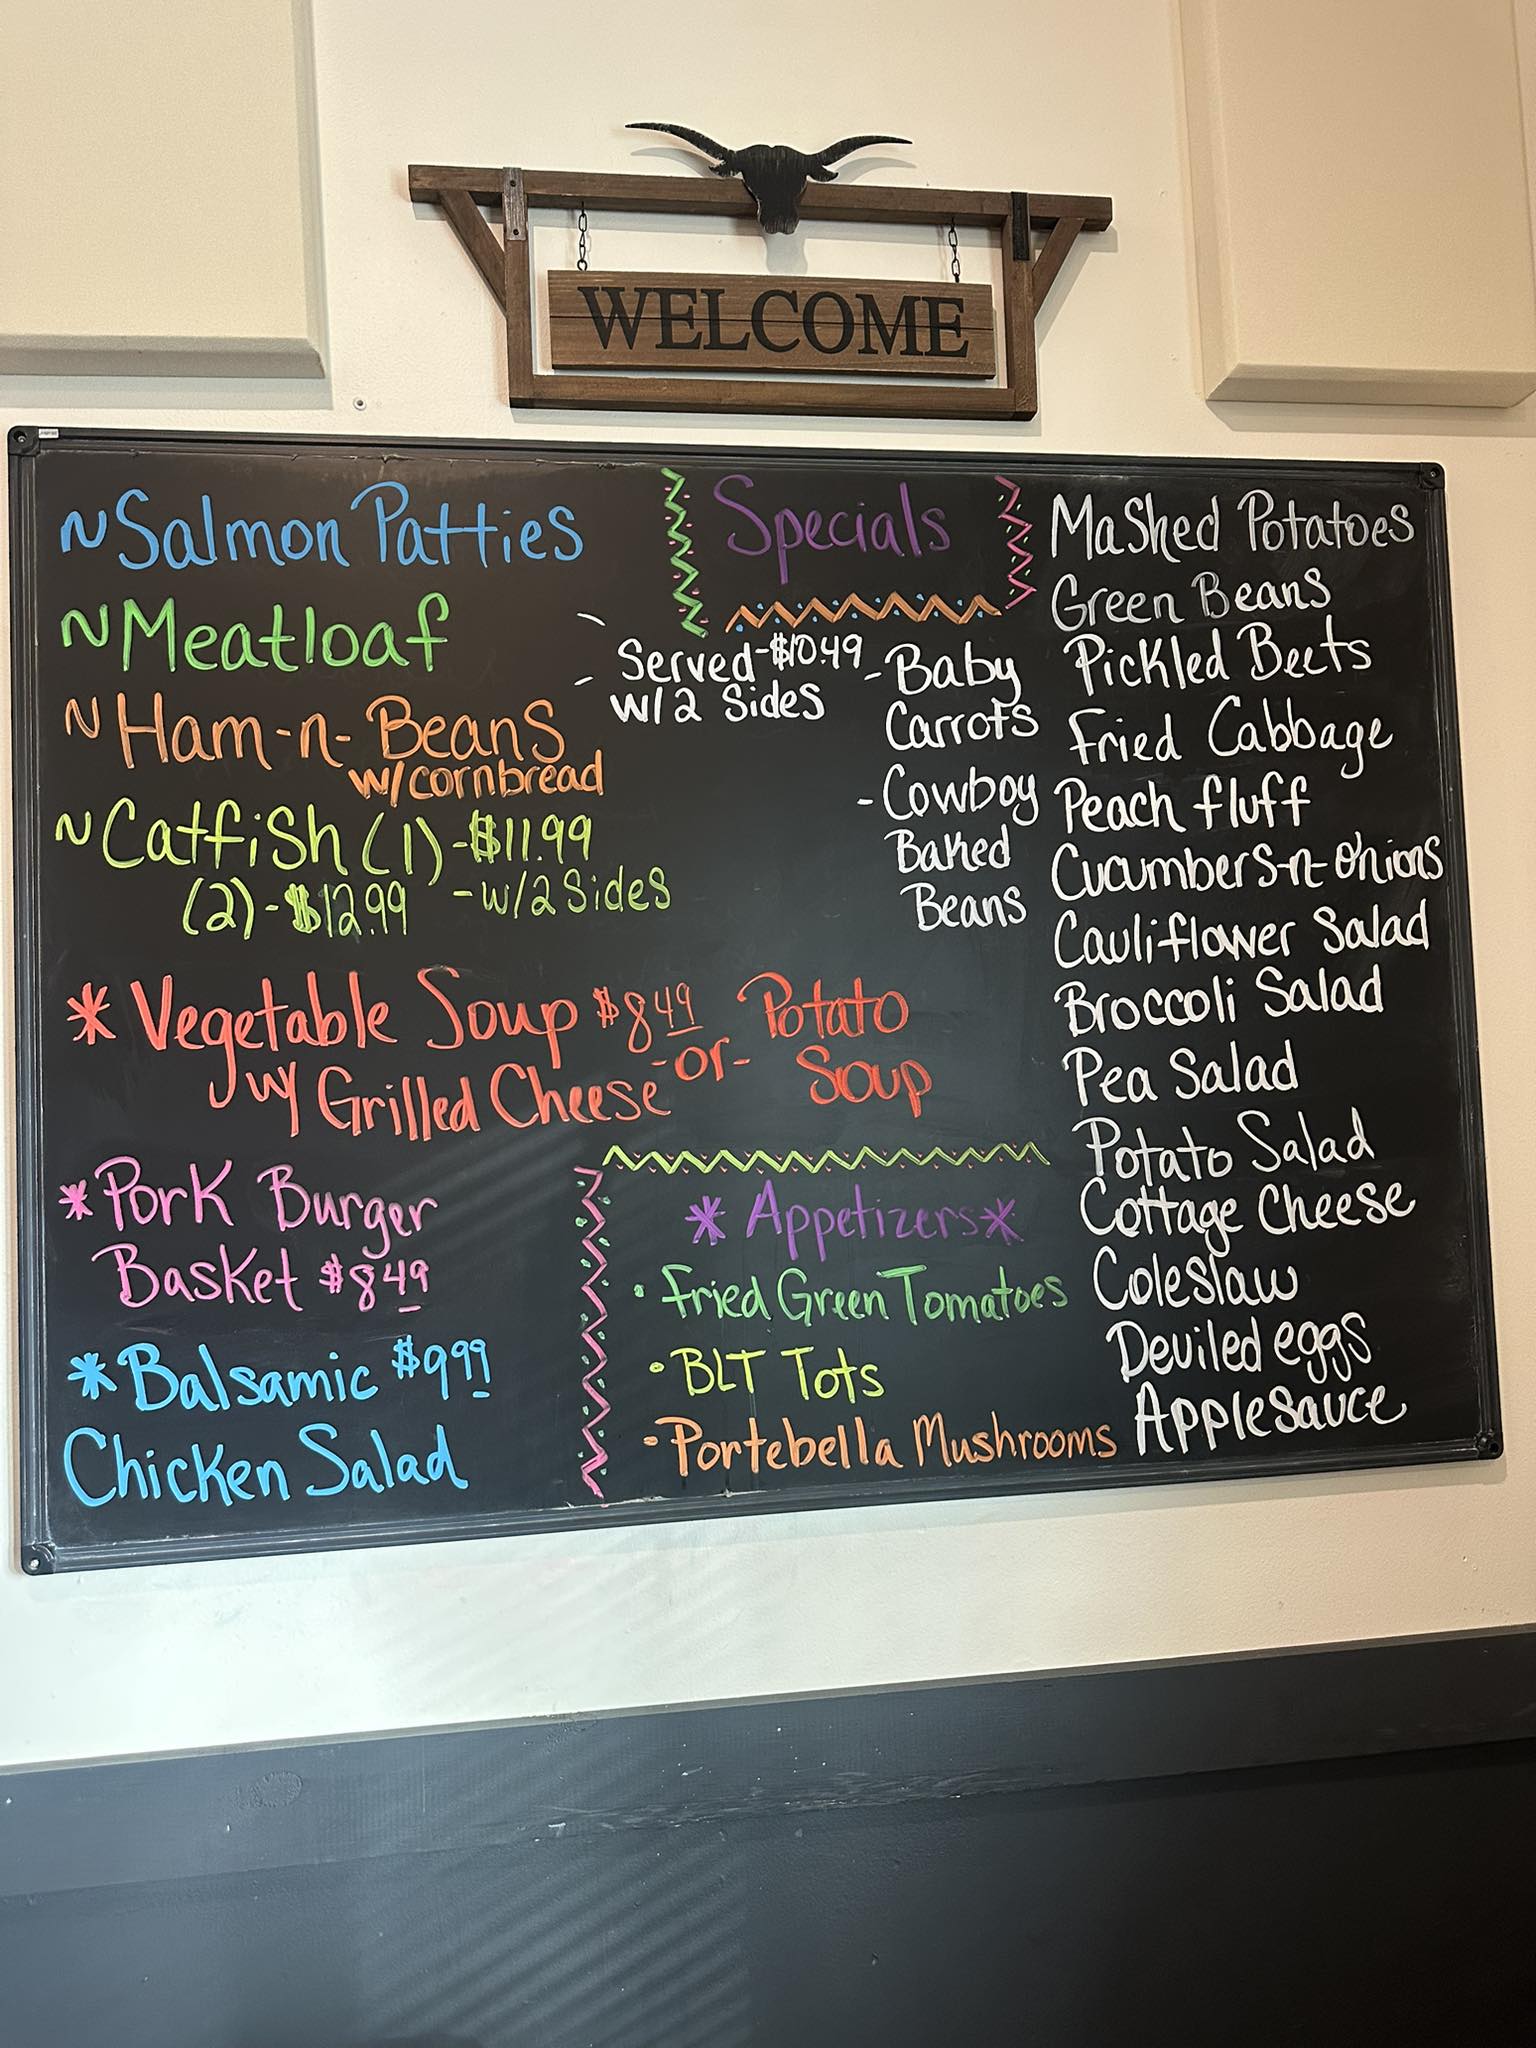 WELCOME
Specials
~Salmon Patties
~Meatloaf
~Ham-n-Beans
w/cornbread
Served-$10.49
w/2 Sides
~Catfish (1)-$11.99
(2)-$12.99 -w/2 Sides
*Vegetable Soup $8.49
w/ Grilled Cheese
-or-
Potato
Soup
*Pork Burger
Basket $8.49
*Balsamic $9.99
Chicken Salad
*Appetizers*
·Fried Green Tomatoes
·BLT Tots
·Portebella Mushrooms
-Baby
Carrots
-Cowboy
Baked
Beans
Mashed Potatoes
Green Beans
Pickled Beets
Fried Cabbage
Peach fluff
Cucumbers-n-Onions
Cauliflower Salad
Broccoli Salad
Pea Salad
Potato Salad
Cottage Cheese
Coleslaw
Deviled eggs
Applesauce